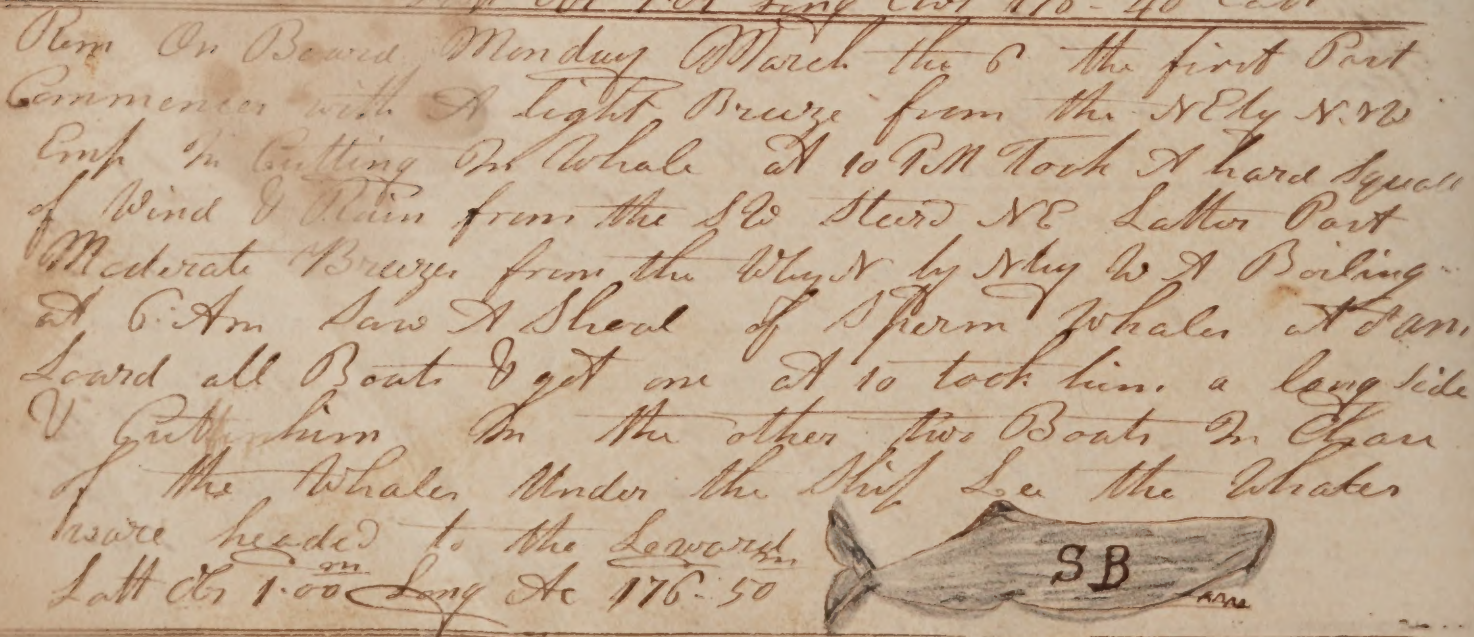 Rem On Board Monday March the 6 the first Part
Commences with A light Breeze from the NEly N.W
Emp in Cutting In Whale at 10 PM Took A hard Squall
of Wind & Rain from the SW Steerd NE Latter Part
Moderate Breezes from the Wby N by Nby W A Boiling
at 6 Am Saw A Sheal of Sperm Whales at 8 am
Loard all Boats & got one at 10 took him a long Side
& him In the other two Boats In Chase
of the Whales Under the Ship Lee the Whales
ware headed to the Leward
Latt Obs 1.00 m Long Ac 176-50 m
SB